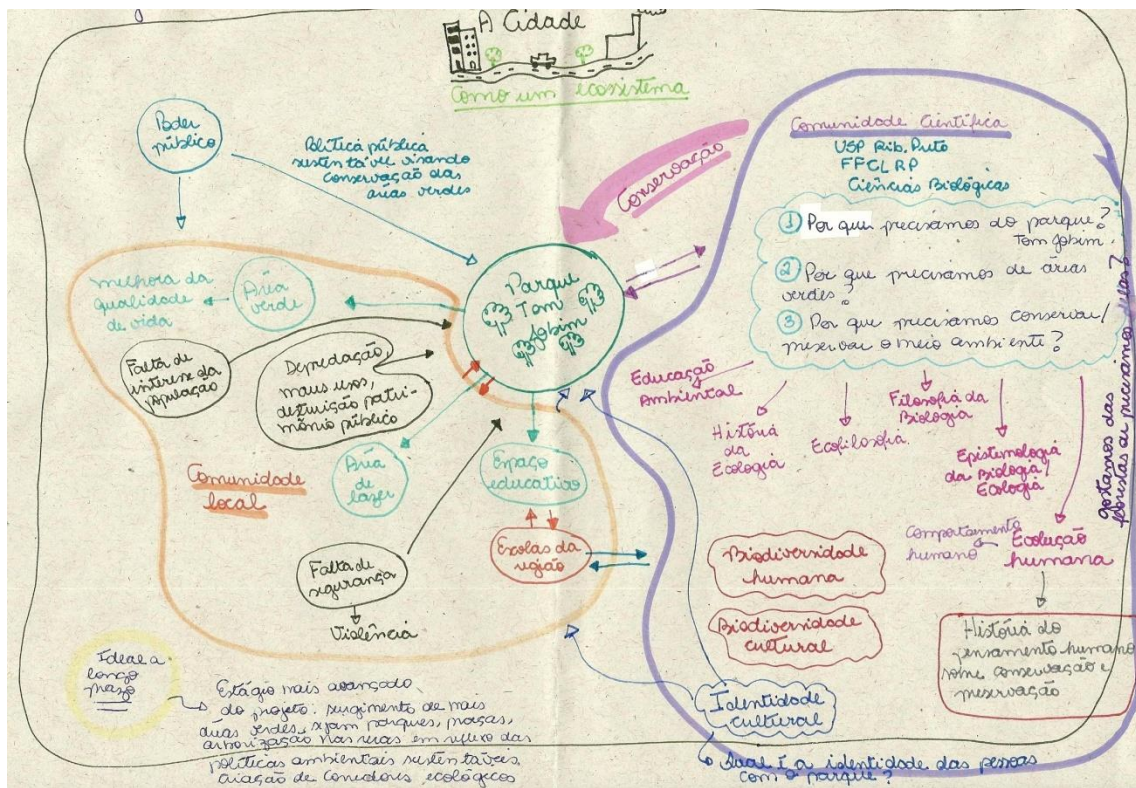 A Cidade
como um ecossistema
Poder
público
Política pública
sustentável visando
conservação das
áreas verdes
Conservação
Comunidade Científica
USP Rib. Preto
FFCLRP
Ciências Biológicas
1 Por que precisamos do parque?
Tom Jobim
2 Por que precisamos de áreas
verdes?
3 Por que precisamos conservar/
preservar o meio ambiente?
Parque
Tom
Jobim
melhora da
qualidade
de vida
Área
verde
Falta de
interesse da
população
Depredação,
maus usos,
destruição patri-
mônio público
Comunidade
local
Área
de
lazer
Espaço
educativo
Escolas da
região
Falta de
segurança
Violência
Educação
Ambiental
História
da
Ecologia
Ecofilosofia
Filosofia da
Biologia
Epistemologia
da Biologia/
Ecologia
comportamento
humano
Evolução
humana
História do
pensamento humano
sobre conservação e
preservação
Gostamos das
florestas ou precisamos delas?
Biodiversidade
humana
Biodiversidade
cultural
Identidade
cultural
Qual é a identidade das pessoas
com o parque?
Ideal a
longo
prazo
Estágio mais avançado
do projeto: surgimento de mais
áreas verdes, sejam parques, praças,
arborização nas ruas em reflexo das
políticas ambientais sustentáveis
criação de corredores ecológicos